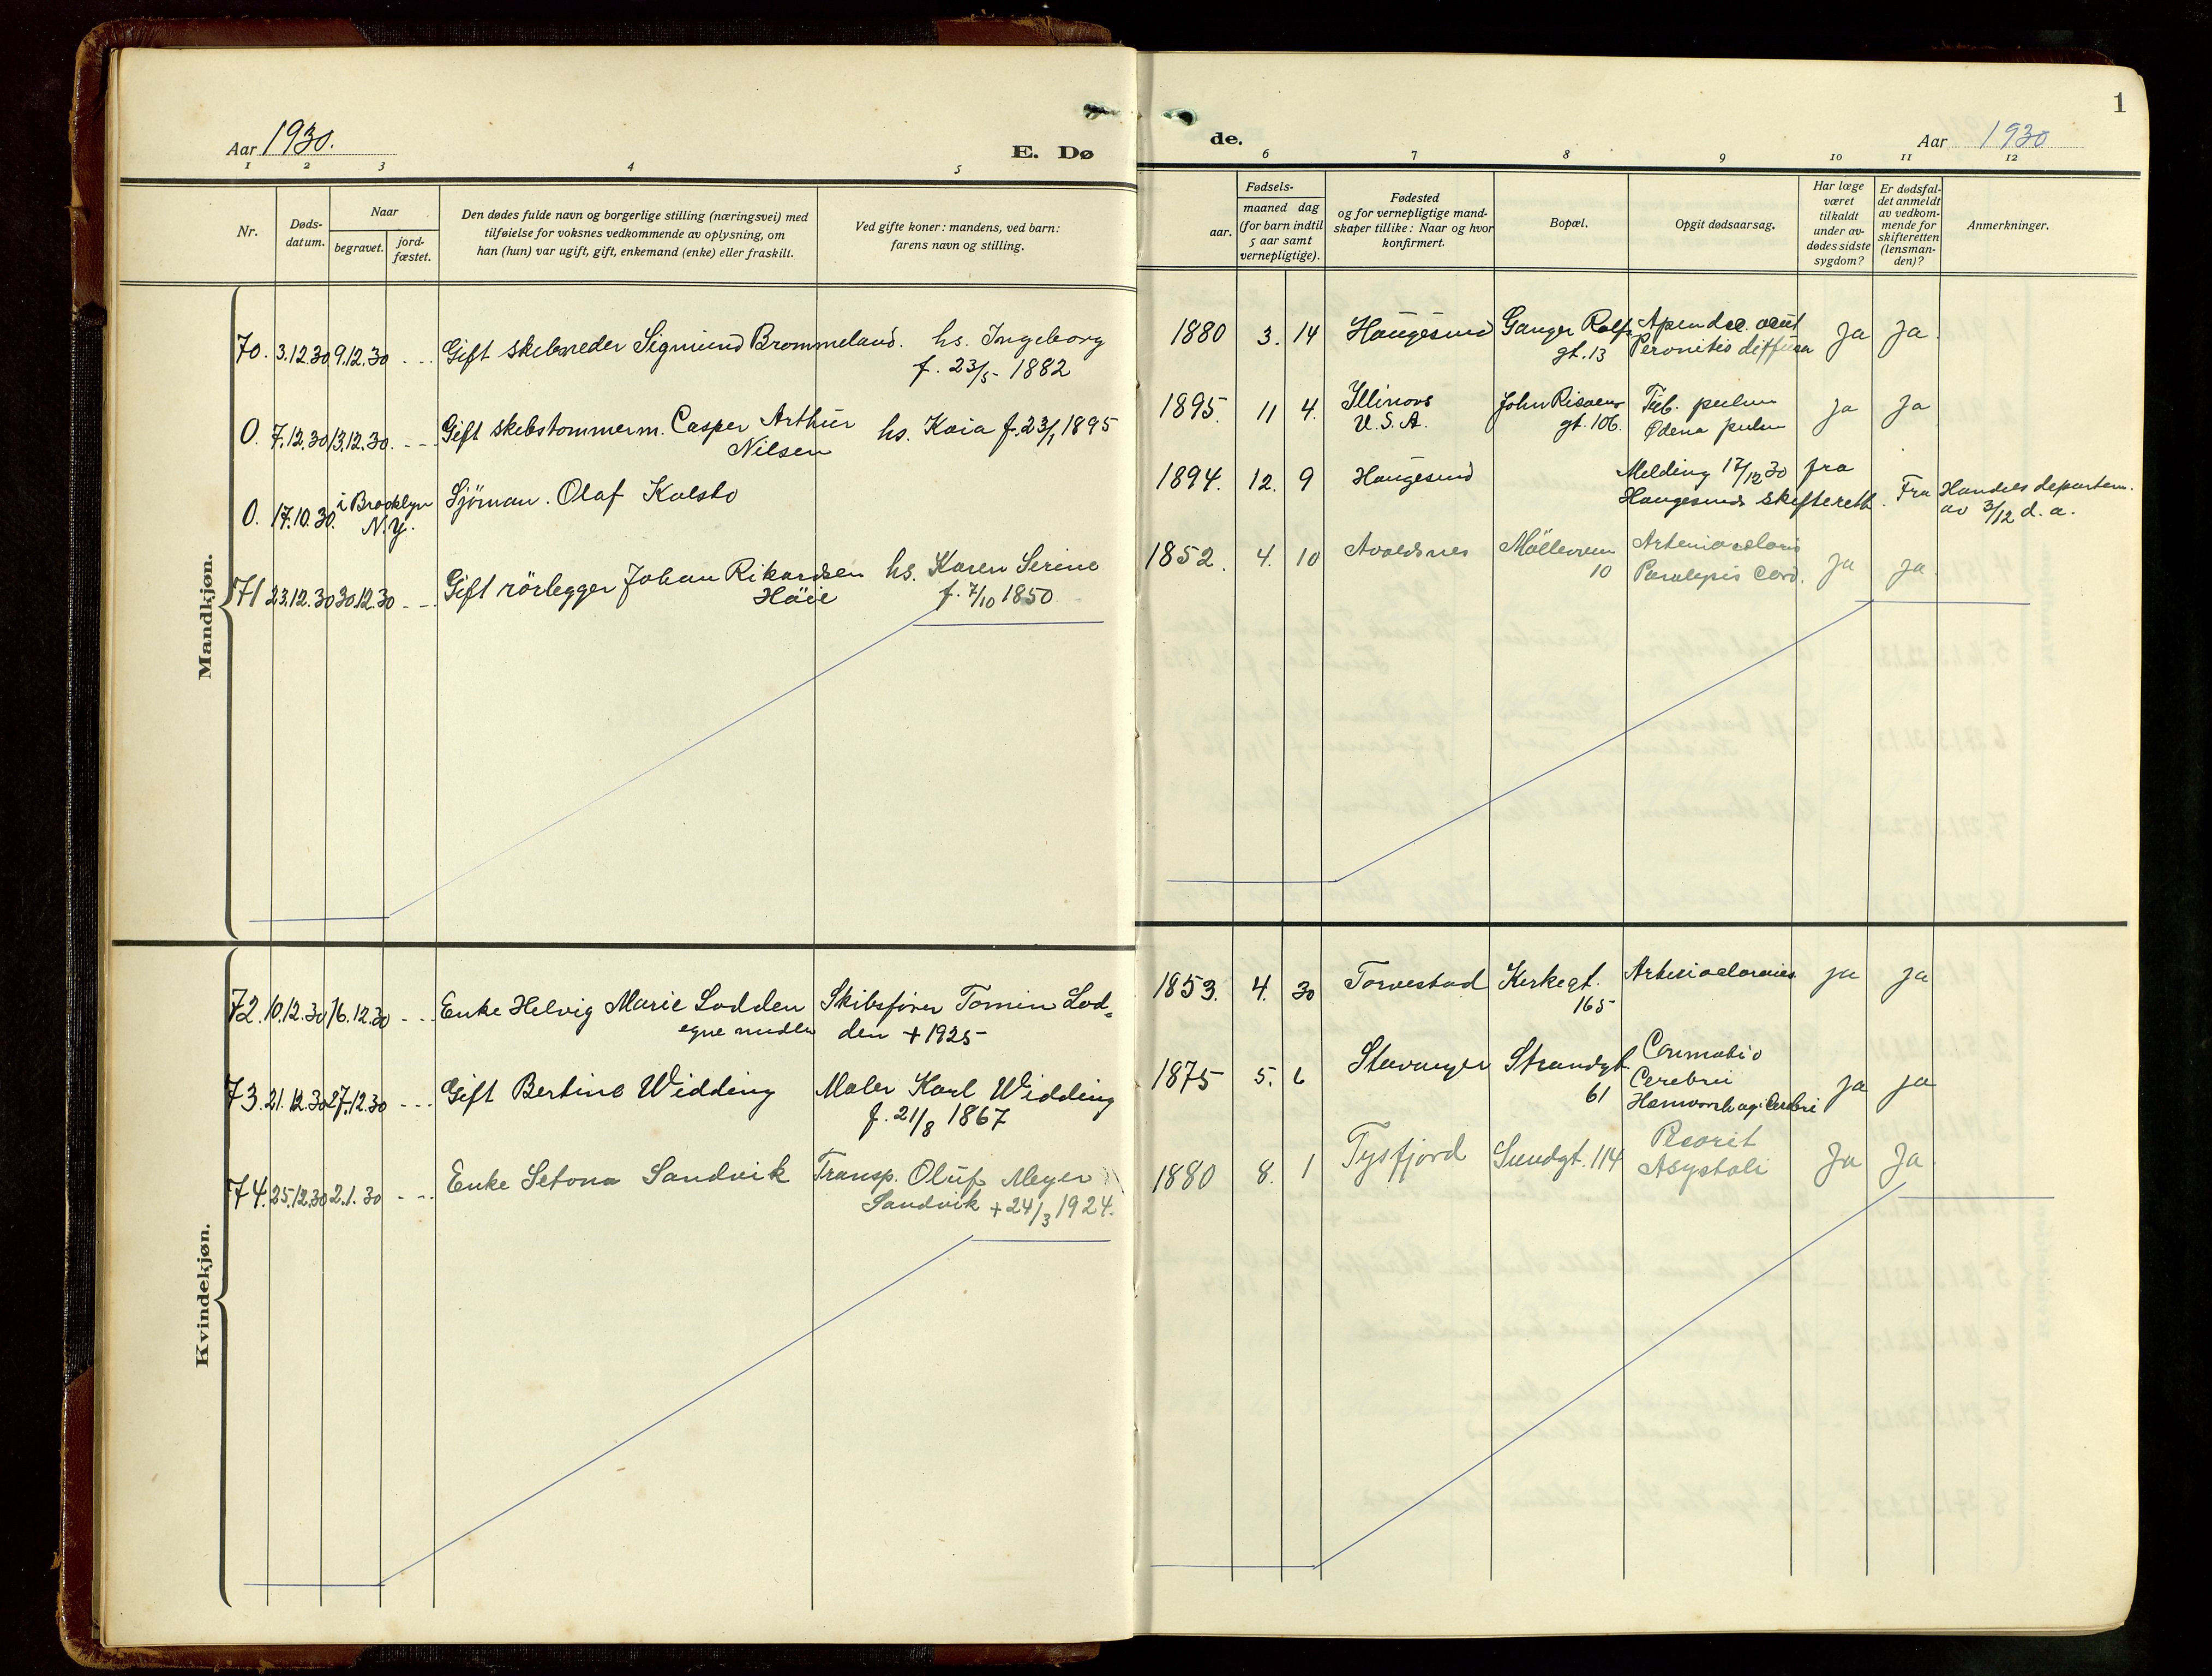 Aar 1930.
E. Dø
de.
Aar 1930
1
1 2 3 4 5
6 7 8 9 10 11 12
Nr.
Døds-
datum.
Naar
begravet.
jord-
fæstet.
Den dødes fulde navn og borgerlige stilling (næringsvei) med
tilføielse for voksnes vedkommende av oplysning, om
han (hun) var ugift, gift, enkemand (enke) eller fraskilt.
Ved gifte koner: mandens, ved barn:
farens navn og stilling.
Fødsels-
aar.
maaned dag
(for barn indtil
5 aar samt
vernepligtige).
Fødested
og for vernepligtige mand-
skaper tillike: Naar og hvor
konfirmert.
Bopæl.
Opgit dødsaarsag.
Har læge
været
tilkaldt
under av-
dødes sidste
sygdom?
Er dødsfal-
det anmeldt
av vedkom-
mende for
skifteretten
(lensman-
den)?
Anmerkninger.
Mandkjøn.
70. 3.12.30 9.12.30 - - Gift skibsreder Sigmund Brommeland. hs. Ingeborg
f. 23/5 - 1882
1880 3. 14 Haugesund Ganger Rolfs
gt. 13
Apendec. acut
Peronitis diffusa
Ja Ja
0. 7.12.30 13.12.30. - - Gift skibstømmerm. Casper Arthur
Nilsen
hs. Kaia f. 23/1 1895
1895. 11 4. Illinois
U.S.A.
John Risøens
gt. 106.
Tub. pulm
Ødema pulm
Ja Ja
0. 17.10.30. i Brooklyn
N.Y.
Sjöman. Olaf Kolstø
1894. 12. 9 Haugesund
Melding 17/12 30 fra
Haugesunds skifterett. Fra Handels departem.
av 3/12 d. a.
71 23.12.30 30.12.30 - - Gift rörlegger Johan Rikardsen
Höie
hs. Karen Serine
f. 7/10 1850
1852. 4. 10 Avaldsnes Mölleveien
10
Paralysis cord.
Ja Ja.
Kvindekjøn.
72. 10.12.30 16.12.30 - - Enke Helvig Marie Lodden
egne midler
Skibsfører Tomin Lod=
den + 1925 -
1853. 4. 30 Torvestad Kirkegt.
165
Ja Ja
73. 21.12.30 27.12.30 - - - Gift Bertine Widding
Maler Karl Widding
f. 21/8 1867
1875 5. 6 Stavanger Strandgt.
61
Cerebri
Ja Ja
74. 25.12.30 2.1.30 - - Enke Setona Sandvik
Transp. Oluf Meyer
Sandvik + 24/3 1924.
1880 8. 1 Tysfjord Sundgt. 114
Asystoli
Ja Ja.